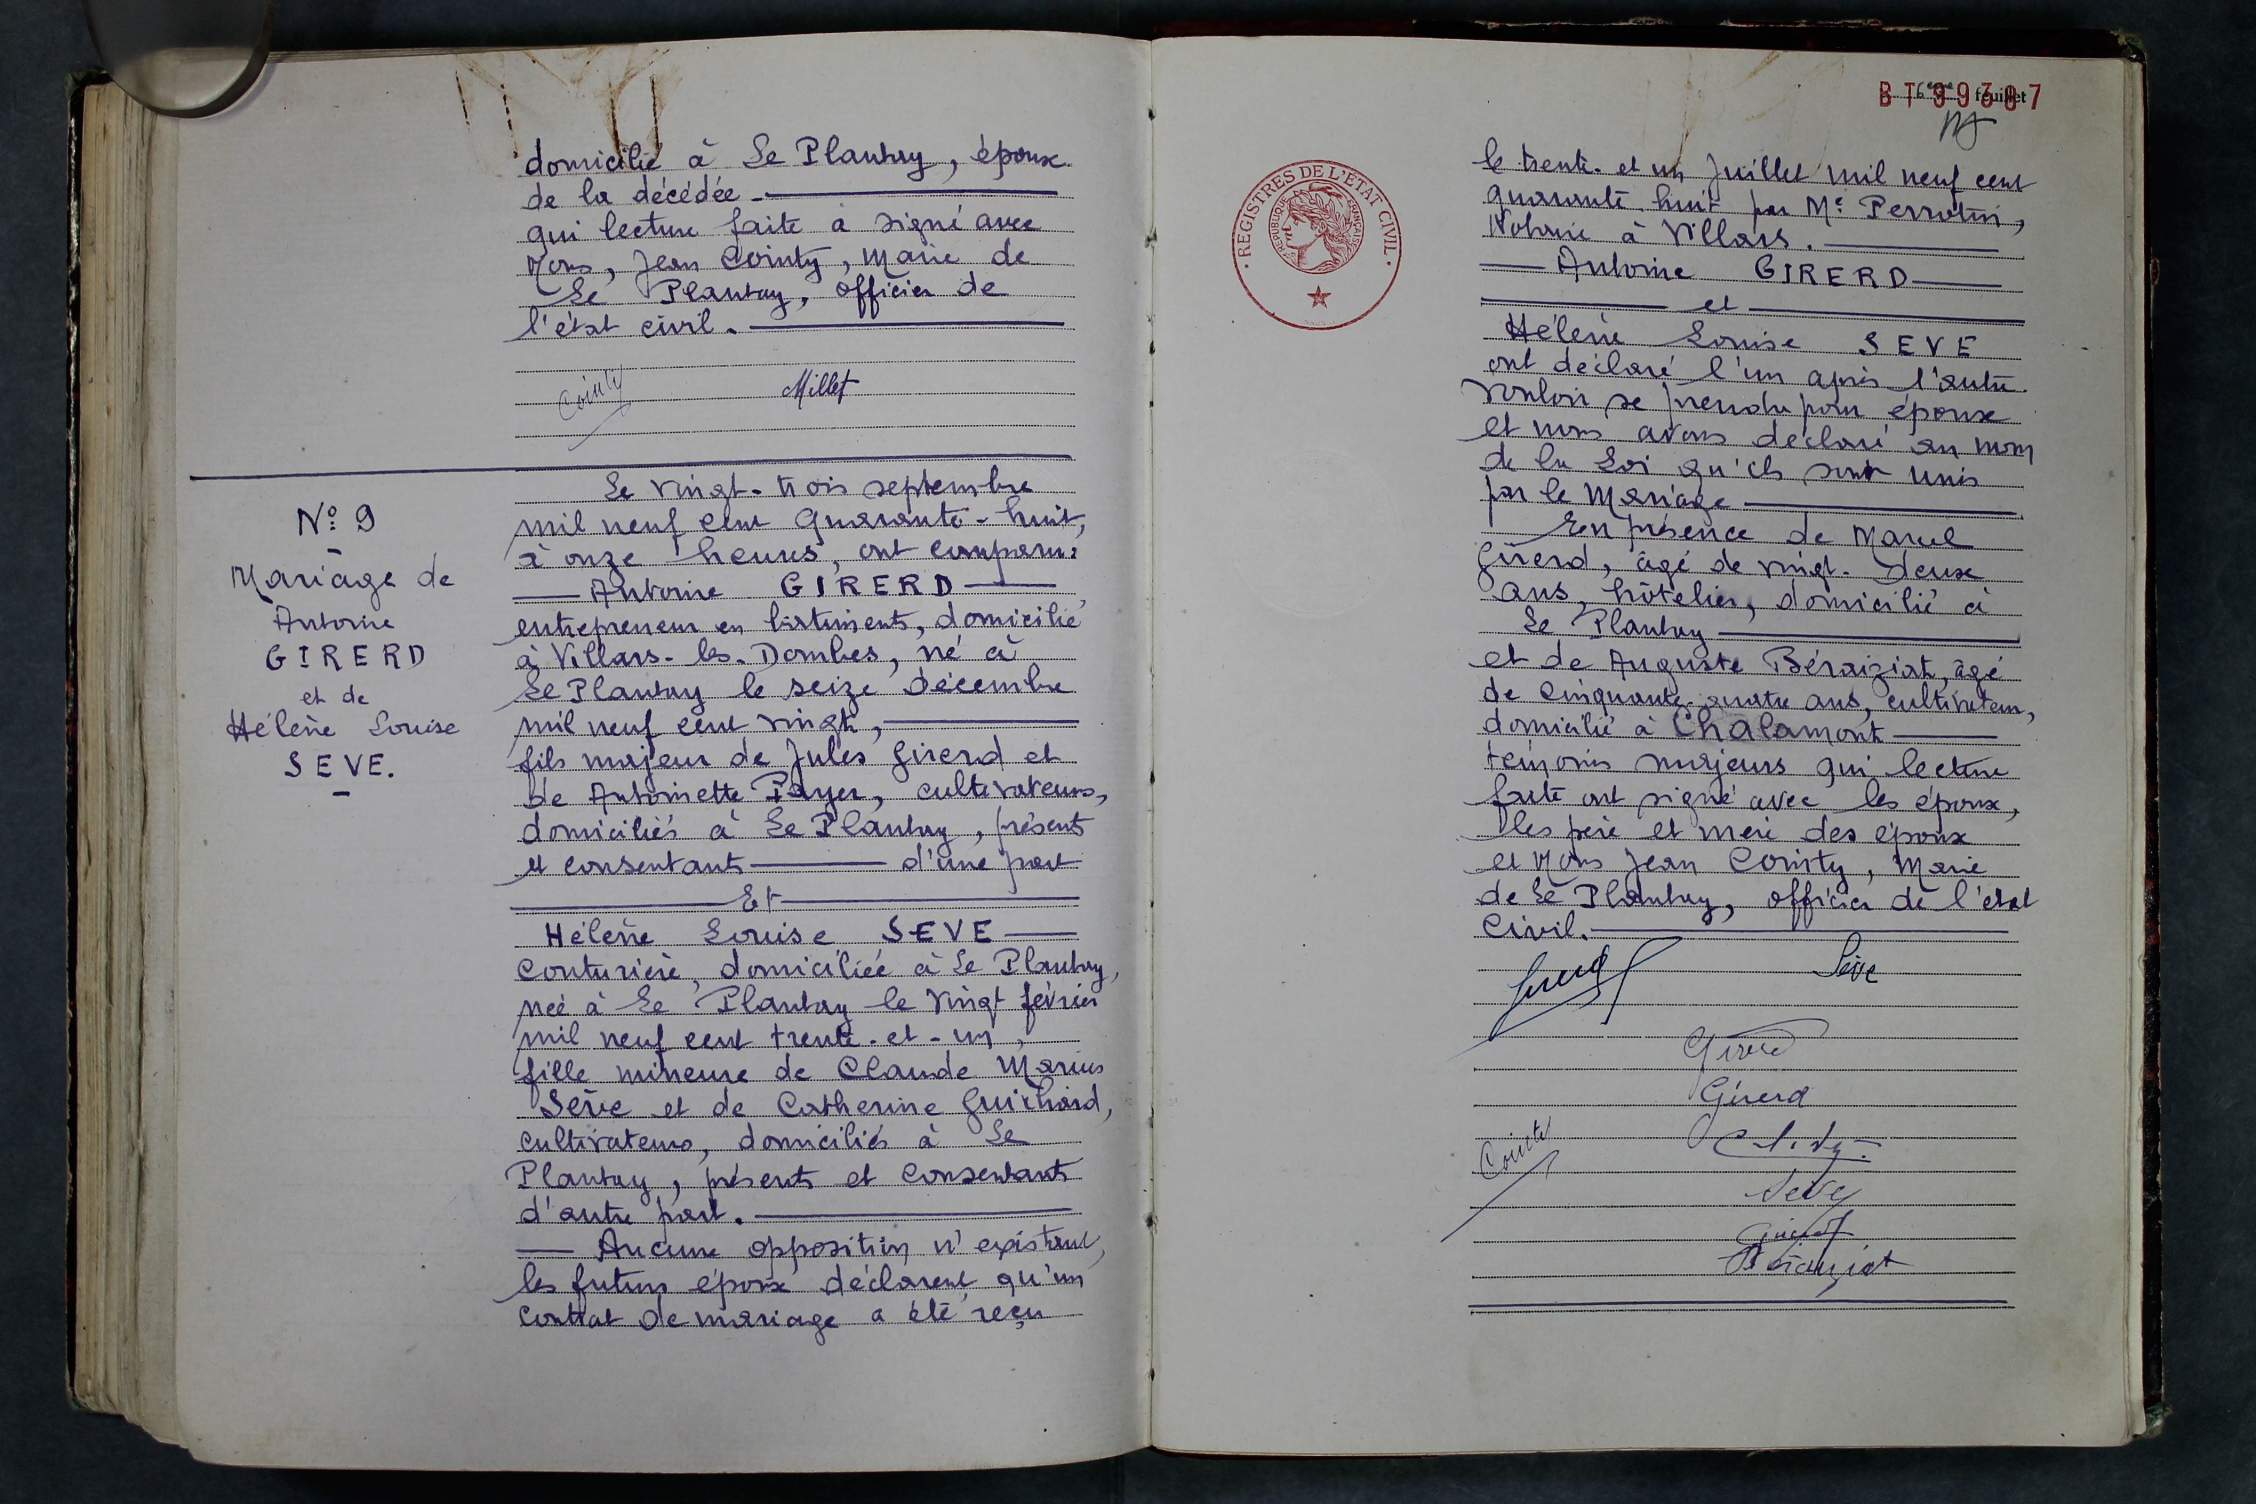 domicilié à Le Plantay, époux
de la décédée
qui lecture faite a signé avec
Nous, Jean Cointy, Maire de
Le Plantay, officier de
l'état civil.
Cointy
Millet
N° 9
Mariage de
Antoine
GIRERD
et de
Hélène Louise
SEVE.
Le vingt-trois septembre
mil neuf cent quarante-huit,
à onze heures, ont comparu:
Antoine GIRERD
entrepreneur en bâtiments, domicilié
à Villars-les-Dombes, né à
Le Plantay le seize décembre
mil neuf cent vingt,
fils majeur de Jules Girerd et
de Antoinette Payer, cultivateurs,
domiciliés à Le Plantay, présents
et consentants d'une part
Et
Hélène Louise SEVE
couturière, domiciliée à Le Plantay,
née à Le Plantay le vingt février
mil neuf cent trente-et-un,
fille mineure de Claude Marius
Sève et de Catherine Guichard,
cultivateurs, domiciliés à Le
Plantay, présents et consentants
d'autre part.
Aucune opposition n'existant,
les futurs époux déclarent qu'un
contrat de mariage a été reçu
BT 99387
feuillet
REGISTRES DE L'ÉTAT CIVIL
REPUBLIQUE FRANÇAISE
le trente-et un Juillet mil neuf cent
quarante huit par Me Perrotin,
Notaire à Villars.
Antoine GIRERD
et
Hélène Louise SEVE
ont déclaré l'un après l'autre
vouloir se prendre pour époux
et nous avons déclaré au nom
de la Loi qu'ils sont unis
par le Mariage
En présence de Marcel
Girerd, âgé de vingt-deux
ans, hôtelier, domicilié à
Le Plantay
et de Auguste Béraiziat, âgé
de cinquante-quatre ans, cultivateur,
domicilié à Chalamont
témoins majeurs qui lecture
faite ont signé avec les époux,
les père et mère des époux
et Nous Jean Cointy, Maire
de Le Plantay, officier de l'état
Civil.
Girerd
Sève
Girerd
Girerd
Cointy
Seve
Béraiziat